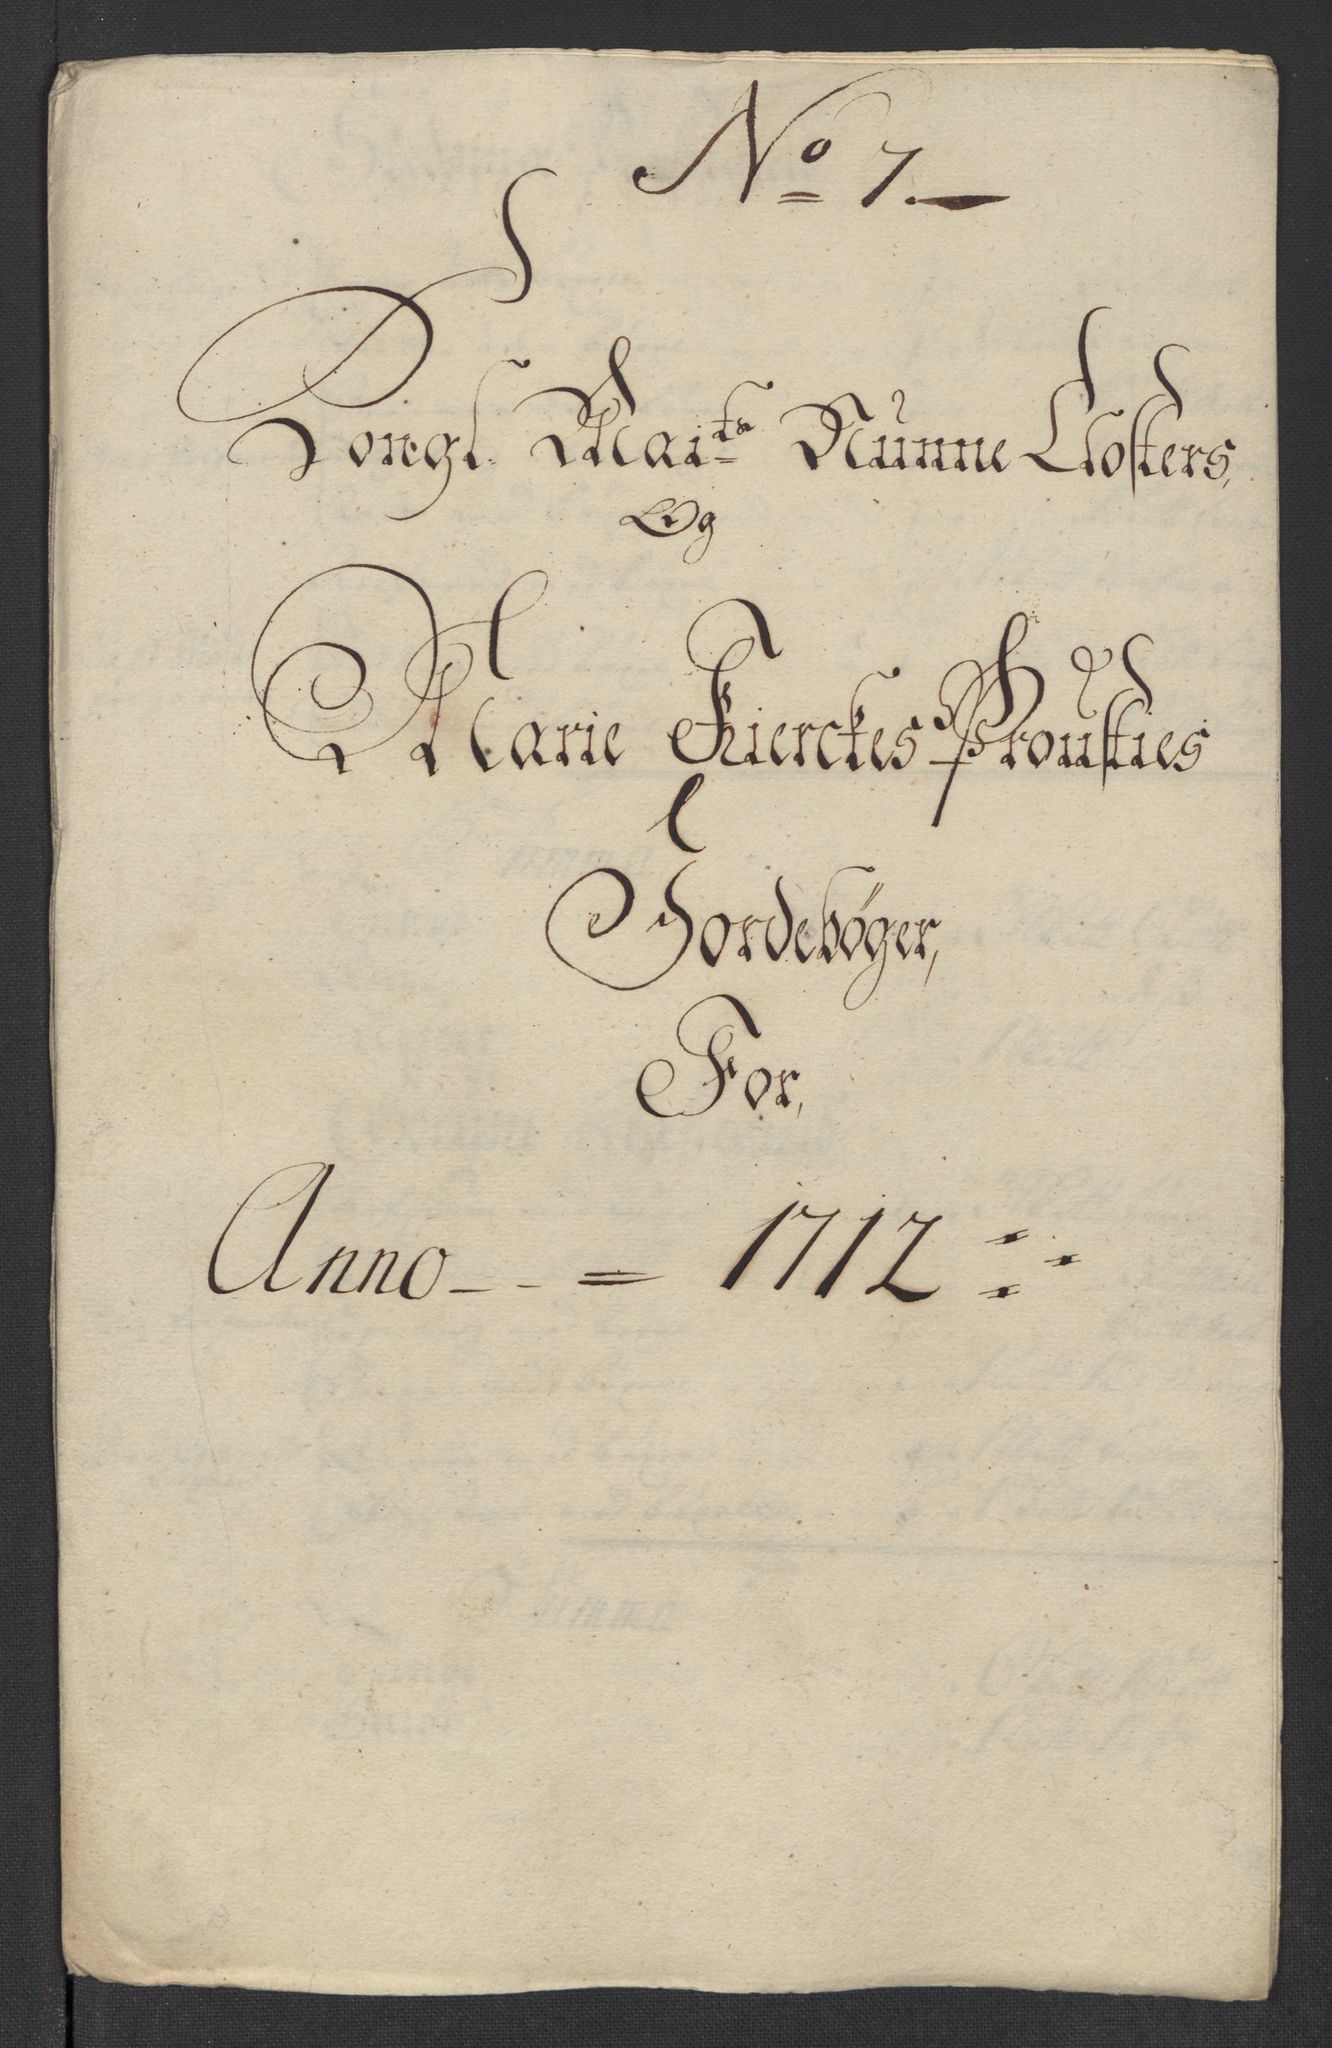 No 7.
Kongl. Maits Nünne Closters,
Og
Marie Kierckes Prousties
Jordebøger,
For,
Anno - - = 1712